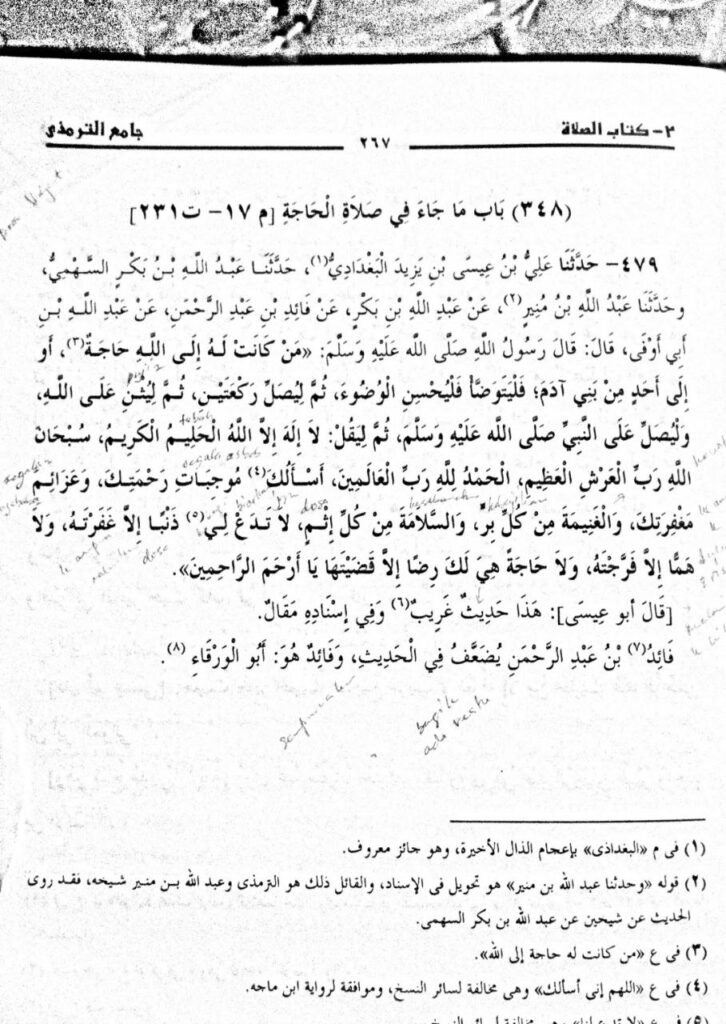 ٣- كتاب الصلاة
٢٦٧
جامع الترمذى
(٣٤٨) بَاب مَا جَاءَ فِي صَلَاةِ الْحَاجَةِ [م ١٧- ت ٢٣١]
٤٧٩- حَدَّثَنَا عَلِيُّ بْنُ عِيسَى بْنِ يَزِيدَ الْبَغْدَادِيُّ(١)، حَدَّثَنَا عَبْدُ اللهِ بْنُ بَكْرٍ السَّهْمِيُّ،
وحَدَّثَنَا عَبْدُ اللهِ بْنُ مُنِيرٍ(٢)، عَنْ عَبْدِ اللهِ بْنِ بَكْرٍ، عَنْ فَائِدِ بْنِ عَبْدِ الرَّحْمَنِ، عَنْ عَبْدِ اللهِ بْنِ
أَبِي أَوْفَى، قَالَ: قَالَ رَسُولُ اللهِ صَلَّى الله عَلَيْهِ وَسَلَّمَ: «مَنْ كَانَتْ لَهُ إِلَى اللهِ حَاجَةٌ(٣)، أَو
إِلَى أَحَدٍ مِنْ بَنِي آدَمَ؛ فَلْيَتَوَضَّأْ فَلْيُحْسِنِ الْوُضُوءَ، ثُمَّ لِيُصَلِّ رَكْعَتَيْنِ، ثُمَّ لِيُثْنِ عَلَى اللهِ،
وَلْيُصَلِّ عَلَى النَّبِيِّ صَلَّى الله عَلَيْهِ وَسَلَّمَ، ثُمَّ لِيَقُلْ: لاَ إِلَهَ إِلاَّ اللهُ الْحَلِيمُ الْكَرِيمُ، سُبْحَانَ
اللهِ رَبِّ الْعَرْشِ الْعَظِيمِ، الْحَمْدُ لِلهِ رَبِّ الْعَالَمِينَ، أَسْأَلُكَ(٤) مُوجِبَاتِ رَحْمَتِكَ، وَعَزَائِمَ
مَغْفِرَتِكَ، وَالْغَنِيمَةَ مِنْ كُلِّ بِرٍّ، وَالسَّلاَمَةَ مِنْ كُلِّ إِثْمٍ، لاَ تَدَعْ لِي(٥) ذَنْبًا إِلاَّ غَفَرْتَهُ، وَلاَ
هَمًّا إِلاَّ فَرَّجْتَهُ، وَلاَ حَاجَةً هِيَ لَكَ رِضًا إِلاَّ قَضَيْتَهَا يَا أَرْحَمَ الرَّاحِمِينَ».
[قَالَ أبو عِيسَى]: هَذَا حَدِيثٌ غَرِيبٌ(٦) وَفِي إِسْنَادِهِ مَقَالٌ.
فَائِدُ(٧) بْنُ عَبْدِ الرَّحْمَنِ يُضَعَّفُ فِي الْحَدِيثِ، وَفَائِدٌ هُوَ: أَبُو الْوَرْقَاءِ(٨).
(١) فى م «البغداذى» بإعجام الذال الأخيرة، وهو جائز معروف.
(٢) قوله «وحدثنا عبد الله بن منير» هو تحويل فى الإسناد، والقائل ذلك هو الترمذى وعبد الله بن منير شيخه، فقد روى
الحديث عن شيخين عن عبد الله بن بكر السهمى.
(٣) فى ع «من كانت له حاجة إلى الله».
(٤) فى ع «اللهم إنى أسألك» وهى مخالفة لسائر النسخ، وموافقة لرواية ابن ماجه.